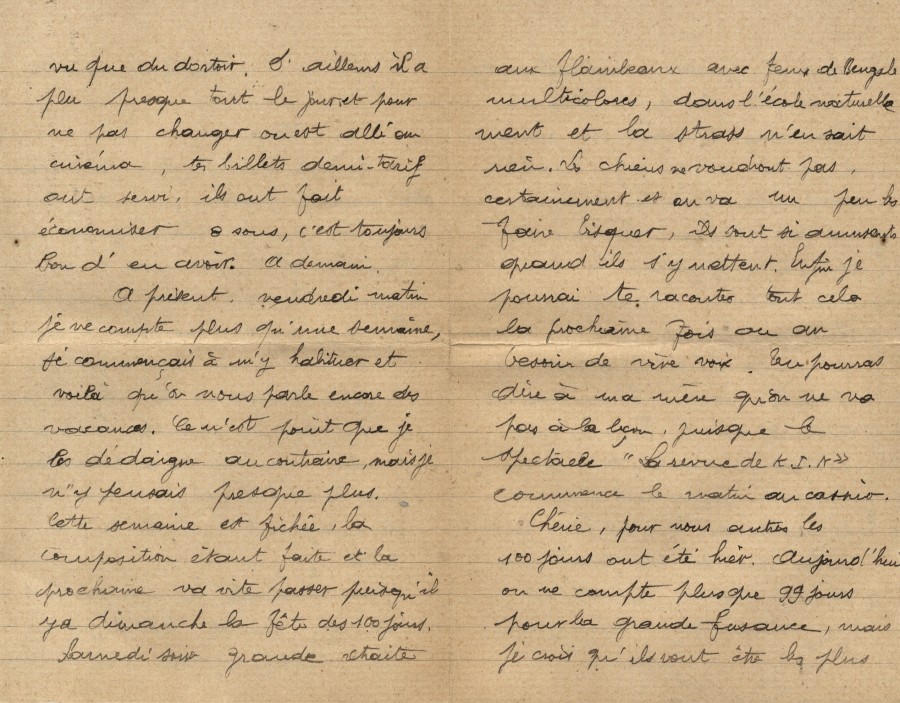 vu que du dortoir. D'ailleurs il a
plu presque tout le jour et pour
ne pas changer on est allé au
cinéma, tes billets demi-tarif
ont servi, ils ont fait
économiser sous, c'est toujours
bon d'en avoir. A demain.
A présent, vendredi matin
je ne compte plus qu'une semaine,
je commençais à m'y habituer et
voilà qu'on nous parle encore des
vacances. Ce n'est point que je
les dédaigne au contraire, mais je
n'y pensais presque plus.
Cette semaine est fichée, la
composition étant faite et la
prochaine va vite passer puisqu'il
y a dimanche la fête des 100 jours.
Samedi soir grande retraite
aux flambeaux avec feux de Bengale
multicolores, dans l'école naturelle
ment et la strass n'en sait
rien. Les chiens ne voudront pas,
certainement et on va un peu les
faire bisquer, ils sont si amusants
quand ils s'y mettent. Enfin je
pourrai te raconter tout cela
la prochaine fois ou au
besoin de vive voix. Tu pourras
dire à ma mère qu'on ne va
pas à la , puisque le
spectacle "La revue de K.I.N»
commence le matin au casino.
Chérie, pour nous autres les
100 jours ont été hier. Aujourd'hui
on ne compte plus que 99 jours
pour la grande , mais
je crois qu'ils vont être les plus